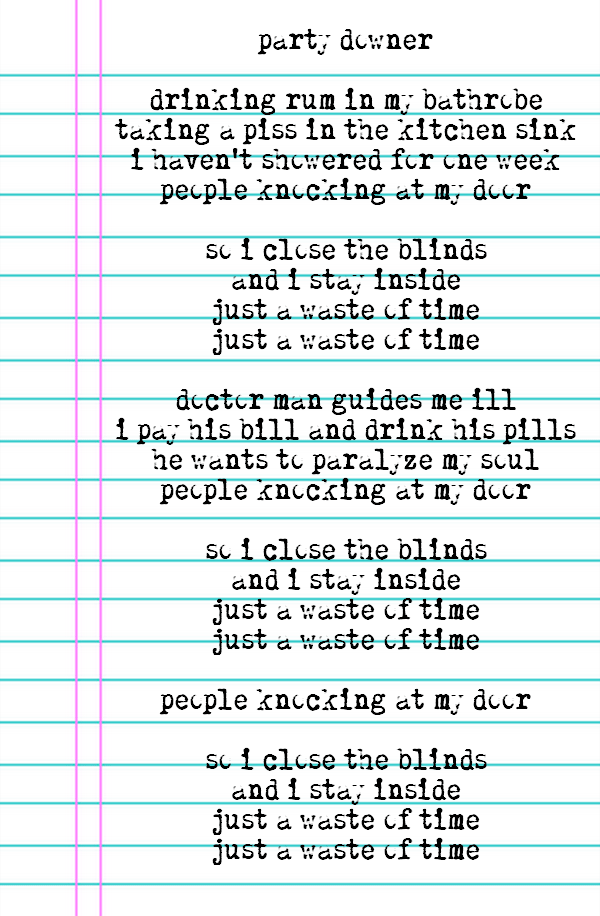 party downer

drinking rum in my bathrobe
taking a piss in the kitchen sink
i haven't showered for one week
people knocking at my door

so i close the blinds
and i stay inside
just a waste of time
just a waste of time

doctor man guides me ill
i pay his bill and drink his pills
he wants to paralyze my soul
people knocking at my door

so i close the blinds
and i stay inside
just a waste of time
just a waste of time

people knocking at my door

so i close the blinds
and i stay inside
just a waste of time
just a waste of time